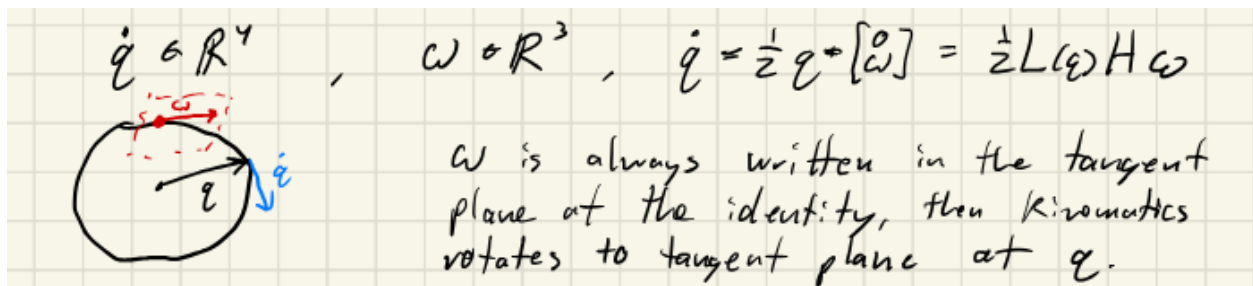 q̇ ∈ ℝ⁴ , ω ∈ ℝ³ , q̇ = ½ q * [0 ω] = ½ L(q) H ω
ω
q
q̇
ω is always written in the tangent
plane at the identity, then kinematics
rotates to tangent plane at q.